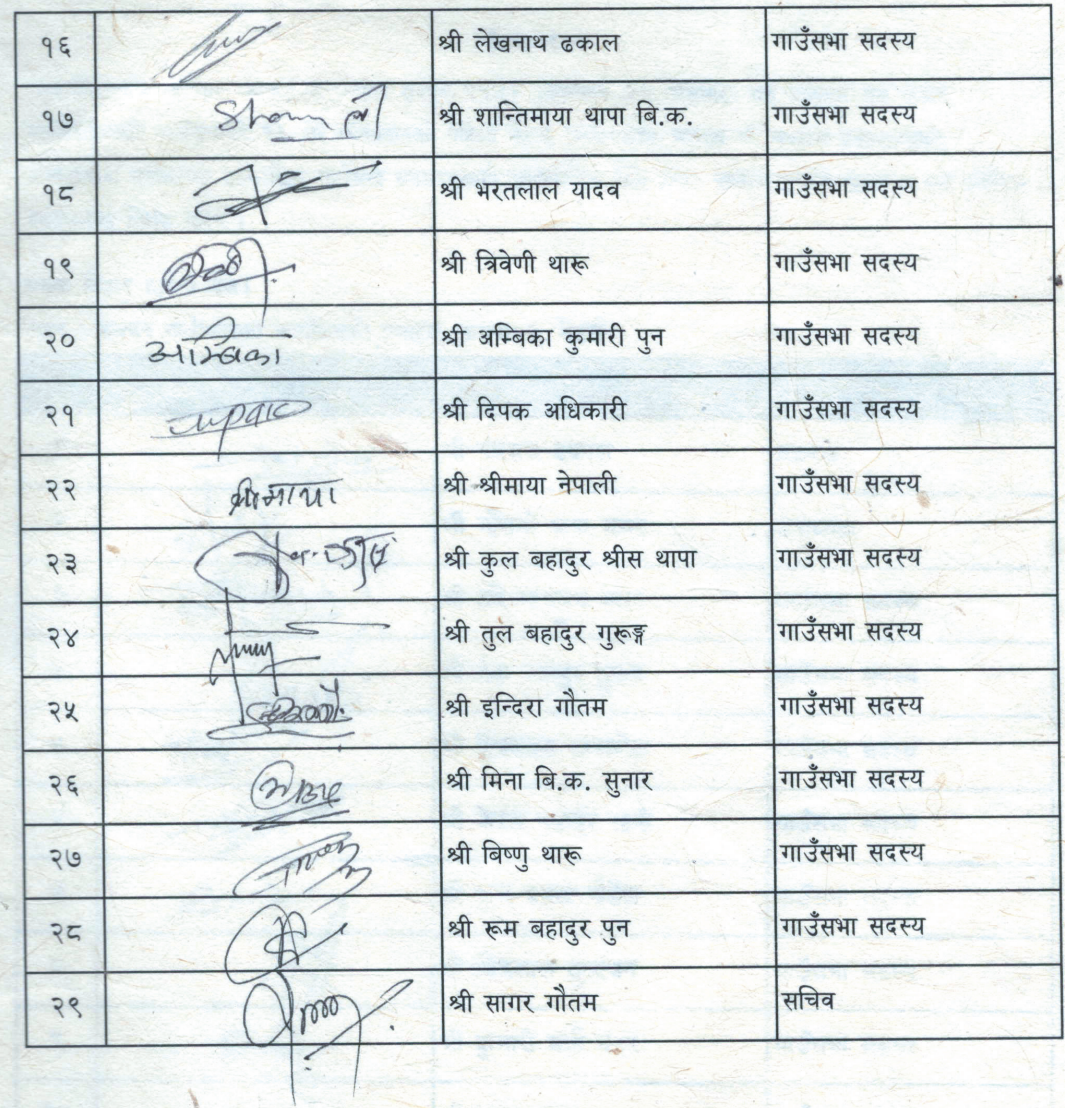 १६ श्री लेखनाथ ढकाल गाउँसभा सदस्य
१७ श्री शान्तिमाया थापा बि.क. गाउँसभा सदस्य
१८ श्री भरतलाल यादव गाउँसभा सदस्य
१९ श्री त्रिवेणी थारू गाउँसभा सदस्य
२० अम्बिका श्री अम्बिका कुमारी पुन गाउँसभा सदस्य
२१ श्री दिपक अधिकारी गाउँसभा सदस्य
२२ श्रीमाया श्री श्रीमाया नेपाली गाउँसभा सदस्य
२३ श्री कुल बहादुर श्रीस थापा गाउँसभा सदस्य
२४ श्री तुल बहादुर गुरूङ्ग गाउँसभा सदस्य
२५ श्री इन्दिरा गौतम गाउँसभा सदस्य
२६ श्री मिना बि.क. सुनार गाउँसभा सदस्य
२७ श्री बिष्णु थारू गाउँसभा सदस्य
२८ श्री रूम बहादुर पुन गाउँसभा सदस्य
२९ श्री सागर गौतम सचिव